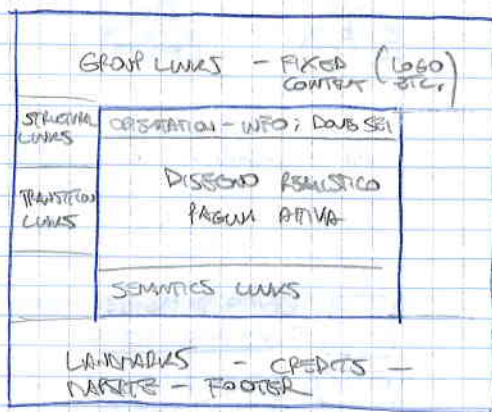 GROUP LINKS - FIXED (LOGO
CONTENT ETC.)
STRUCTURAL
LINKS
ORIENTATION - INFO; DOVE SEI
TRANSITION
LINKS
DISEGNO REALISTICO
PAGINA ATTIVA
SEMANTICS LINKS
LANDMARKS - CREDITS -
- FOOTER